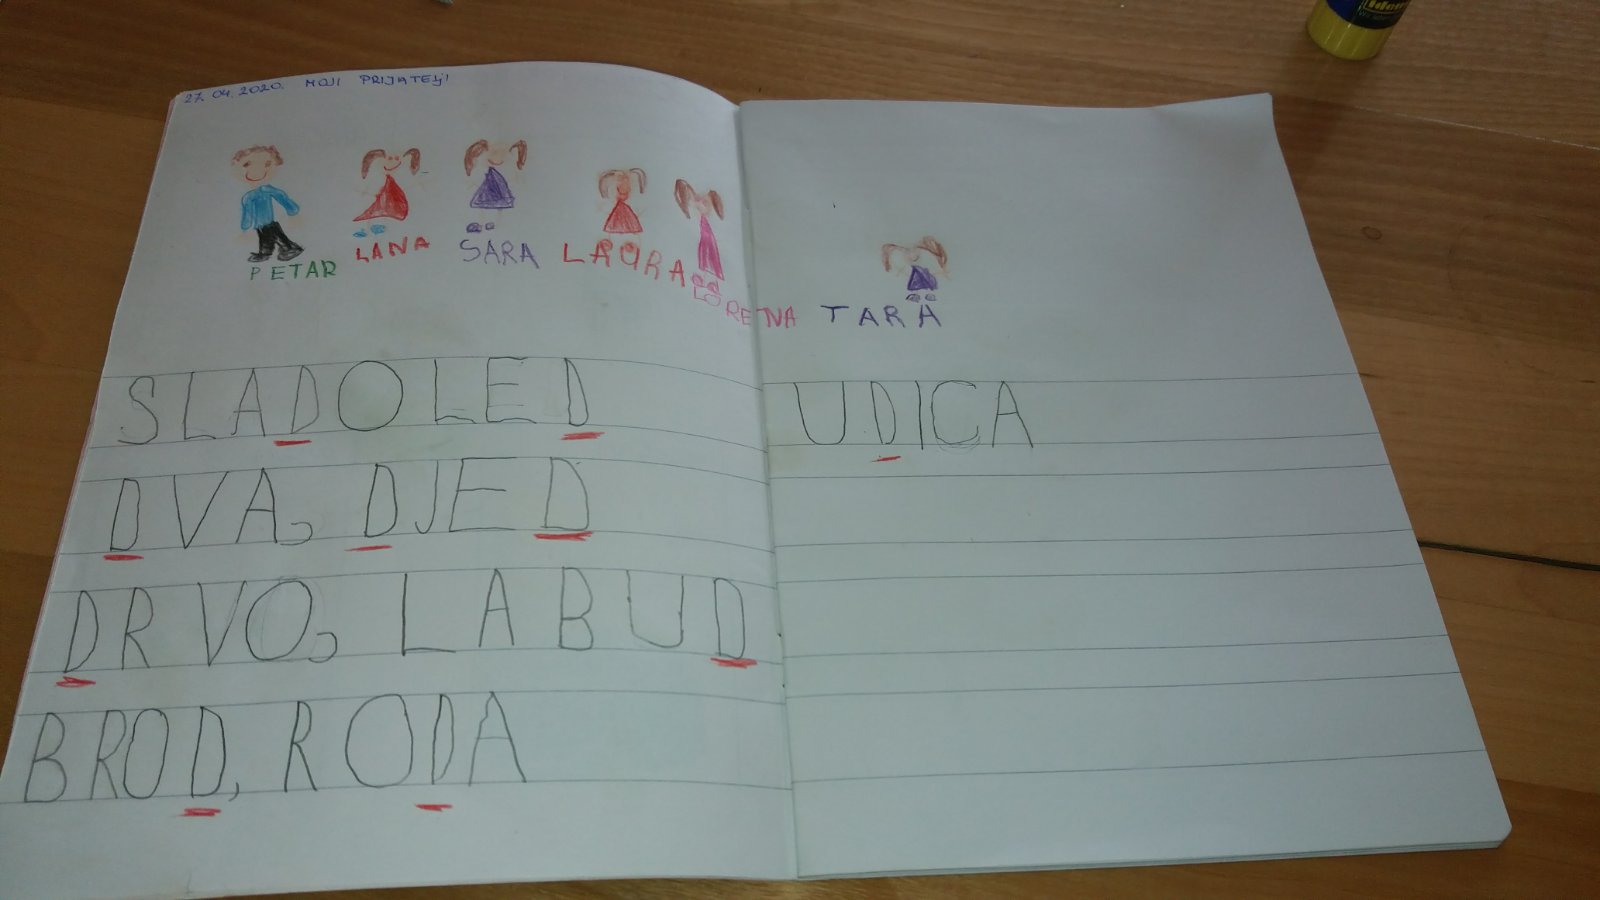 27. 04. 2020. MOJI PRIJATELJI
PETAR LANA SARA LAURA LORENA TARA
SLADOLED
DVA, DJED
DRVO, LABUD
BROD, RODA
UDICA